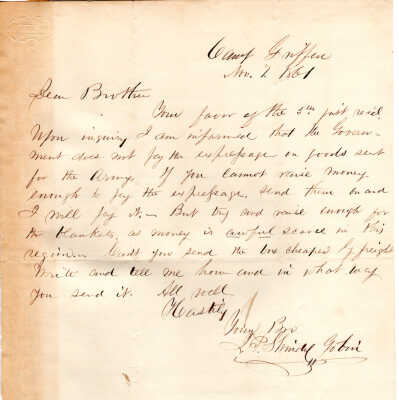 Camp Griffin
Nov. 7 1861
Dear Brother
Your favor of the 5th just recd.
Upon inquiry I am informed that the Govern-
ment does not pay the expressage on goods sent
for the Army. If you cannot raise money
enough to pay the expressage, send them on and
I will pay it,— But try and raise enough for
the blankets, as money is awful scarce in this
region. you send the box cheaper by freight
Write and tell me how and in what way
you send it. All well
Hastily
Your Bro
J. P. Shindel Gobin